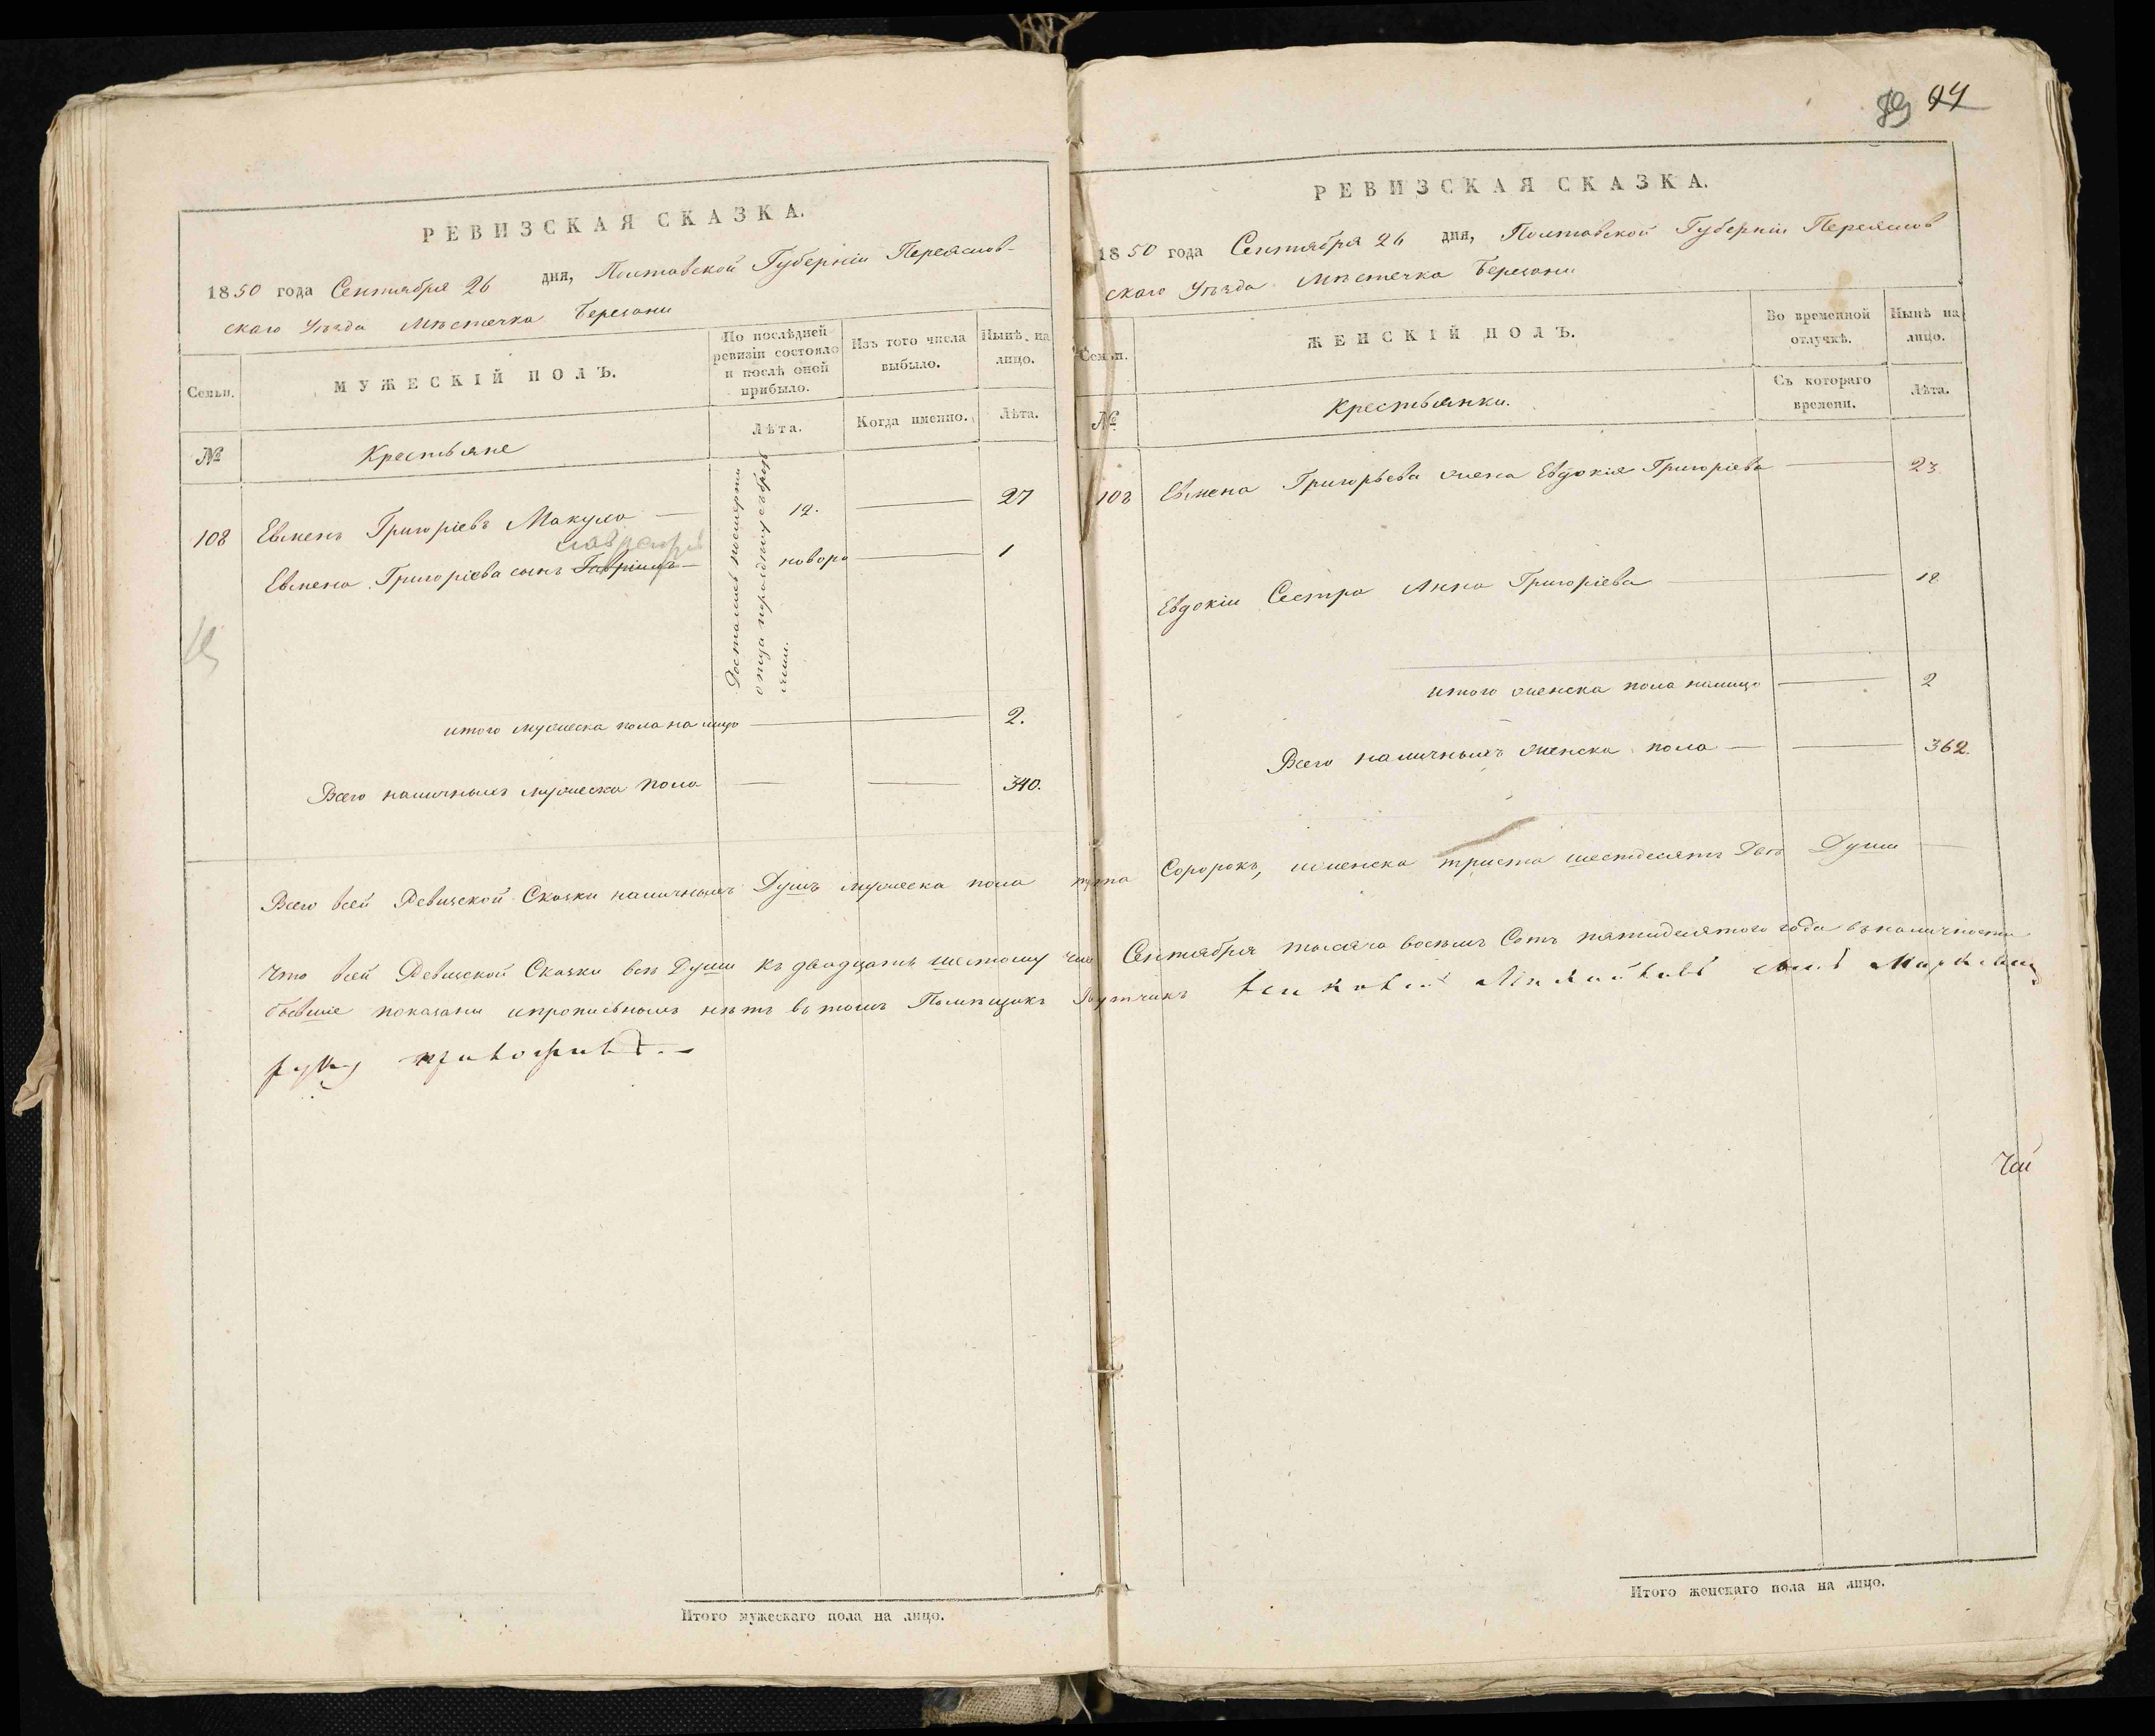 РЕВИЗСКАЯ СКАЗКА.
1850 года Сентября 26 дня, Полтавской Губерніи Переяслов-
скаго Уѣзда Мѣстечка Березани
Семьи.
МУЖЕСКІЙ ПОЛЪ.
По послѣдней ревизіи состояло и послѣ оной прибыло.
Изъ того числа выбыло.
Нынѣ на лицо.
№
Крестьяне
Лѣта.
Когда именно.
Лѣта.
108 Евменъ Григоріевъ Макуло — 12. — 27
Евмена Григоріева сынъ Гавріилъ — новоро — 1
Достался посмерти
отца
итого мужеска пола на лицо — 2.
Всего наличныхъ мужеска пола — 340.
Итого мужескаго пола на лицо.
89 94
РЕВИЗСКАЯ СКАЗКА.
1850 года Сентября 26 дня, Полтавской Губерніи Переяслов
скаго Уѣзда Мѣстечка Березани
Семьи.
ЖЕНСКІЙ ПОЛЪ.
Во временной отлучкѣ.
Нынѣ на лицо.
№
Крестьянки.
Съ котораго времени.
Лѣта.
108 Евмена Григорьева жена Евдокія Григоріева — 23
Евдокіи Сестра Анна Григоріева — 18
итого женска пола налицо — 2
Всего наличныхъ женска пола — 362.
Всего всей Ревизской Сказки наличныхъ Душъ мужеска пола Соророкъ, женска триста шестдесятъ Двѣ Души
Что всей Ревизской Сказки всѣ Души къ двадцать шестому Сентября тысяча восемь Сотъ пятидесятого года вналичности
бывшие показаны ипрописныхъ нѣтъ втомъ Помѣщикъ
руку приложилъ. —
Итого женскаго пола на лицо.